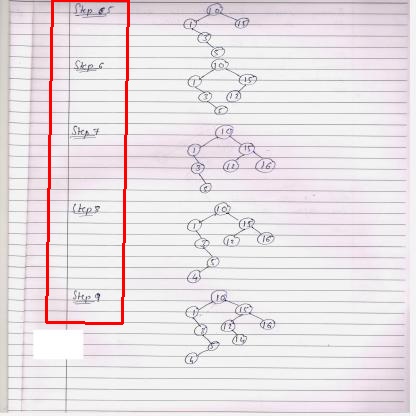 Step 5
10
1 15
3
5
Step 6
10
1 15
3 12
5
Step 7
10
1 15
3 12 16
5
Step 8
10
1 15
3 12 16
5
4
Step 9
10
1 15
3 12 16
5 14
4